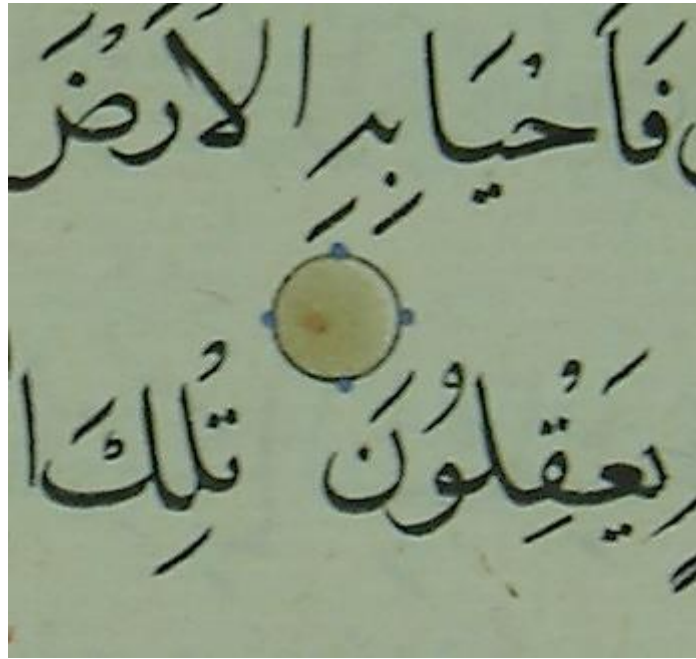 فَاَحْيَا بِهِ الْاَرْضَ
يَعْقِلُونَ تِلْكَ